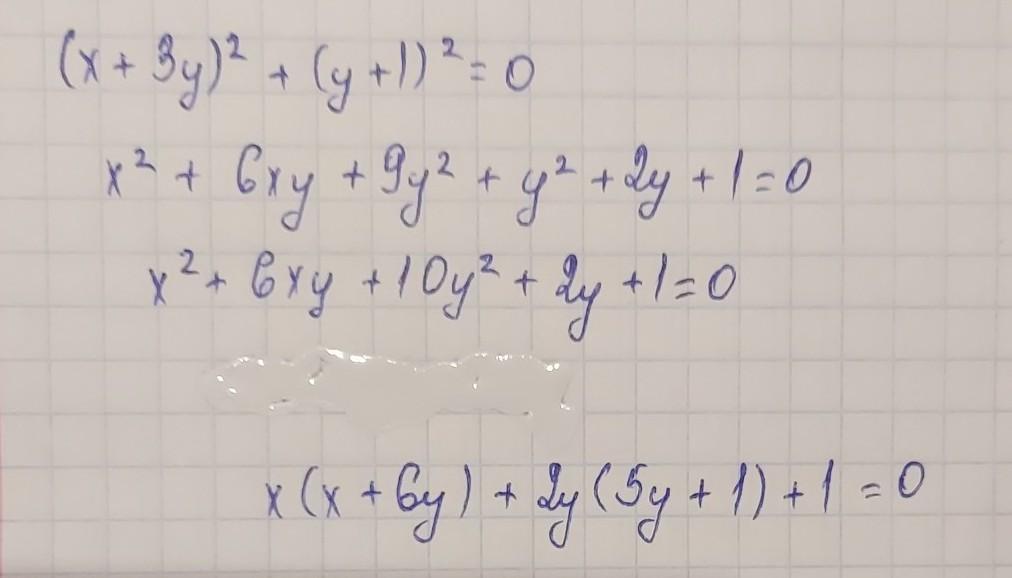 (x + 3y)² + (y + 1)² = 0
x² + 6xy + 9y² + y² + 2y + 1 = 0
x² + 6xy + 10y² + 2y + 1 = 0
x(x + 6y) + 2y(5y + 1) + 1 = 0